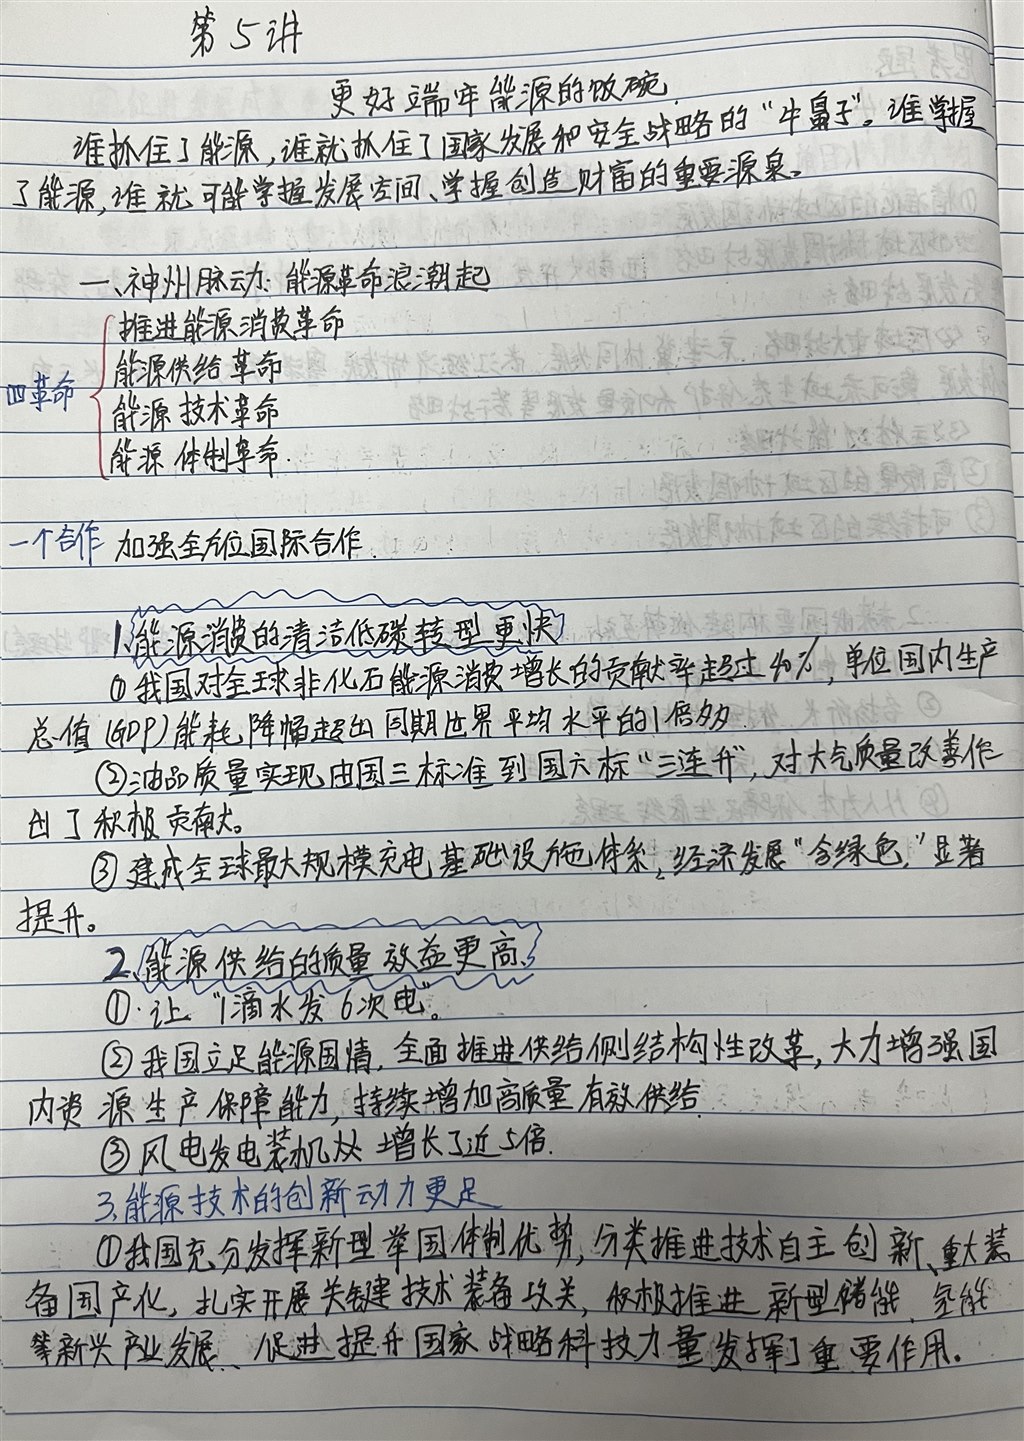 第5讲
更好端牢能源的饭碗.
谁抓住了能源,谁就抓住了国家发展和安全战略的“牛鼻子”。谁掌握
了能源,谁就可能掌握发展空间、掌握创造财富的重要源泉。
一、神州脉动:能源革命浪潮起
推进能源消费革命
能源供给革命
四革命
能源技术革命
能源体制革命.
一个合作 加强全方位国际合作.
1.能源消费的清洁低碳转型更快
①我国对全球非化石能源消费增长的贡献率超过40%,单位国内生产
总值(GDP)能耗降幅超出同期世界平均水平的1倍多
②油品质量实现由国三标准到国六标“三连升”,对大气质量改善作
出了积极贡献。
③建成全球最大规模充电基础设施体系,经济发展“含绿色,”显著
提升。
2、能源供给的质量效益更高、
①.让“1滴水发6次电”。
②我国立足能源国情,全面推进供给侧结构性改革,大力增强国
内资源生产保障能力,持续增加高质量有效供给.
③风电发电装机从增长了近5倍.
3.能源技术的创新动力更足
①我国充分发挥新型举国体制优势,分类推进技术自主创新、重大装
备国产化,扎实开展关键技术装备攻关,积极推进新型储能、氢能
等新兴产业发展、促进提升国家战略科技力量发挥了重要作用。